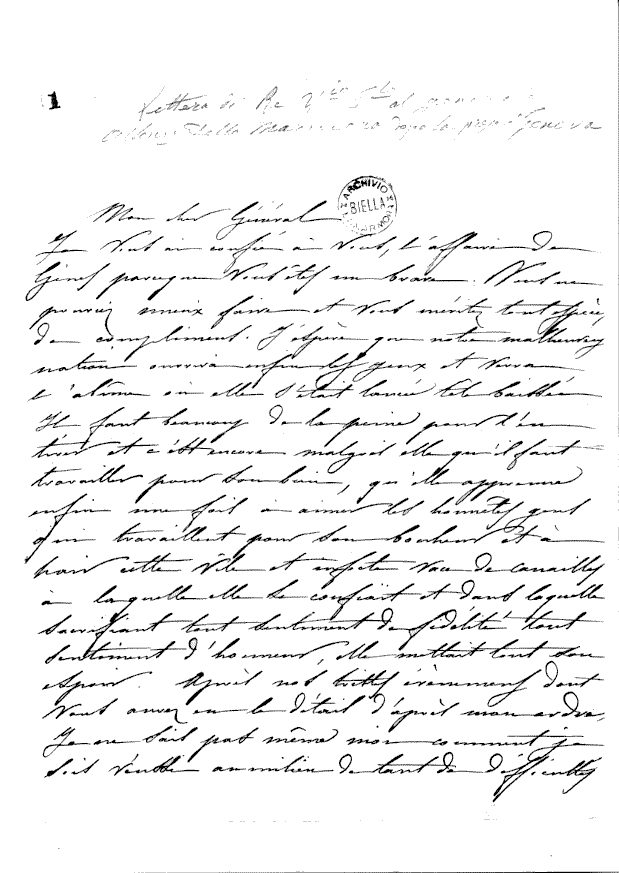 1
Lettera di Re Vio Ele al
dopo la Genova
ARCHIVIO
BIELLA
Mon cher Général
Je Vous ai confié à Vous, l'affaire de
Gines parceque Vous êtes un brave. Vous ne
pouviez mieux faire et Vous méritez tout espèce
de compliment. J'espère que notre malheureuse
nation ouvrira enfin les yeux et verra
l'abime où elle s'était lancée tête baissée
Il faut beaucoup de la peine pour l'en
tirer et c'est encore malgré elle qu'il faut
travailler pour son bien, qu'elle apprenne
enfin une fois à aimer les honnêtes gens
qui travaillent pour son bonheur et à
hair cette vile et infecte race de canailles
à laquelle elle se confiait et dans laquelle
sacrifiant tout sentiment de fidélité tout
sentiment d'honneur, elle mettait tout son
espoir. Après nos tristes évènemens dont
Vous aurez eu le détail d'après mon ordre,
Je ne sais pas même moi comment je
sois réussi au milieu de tant de difficultés